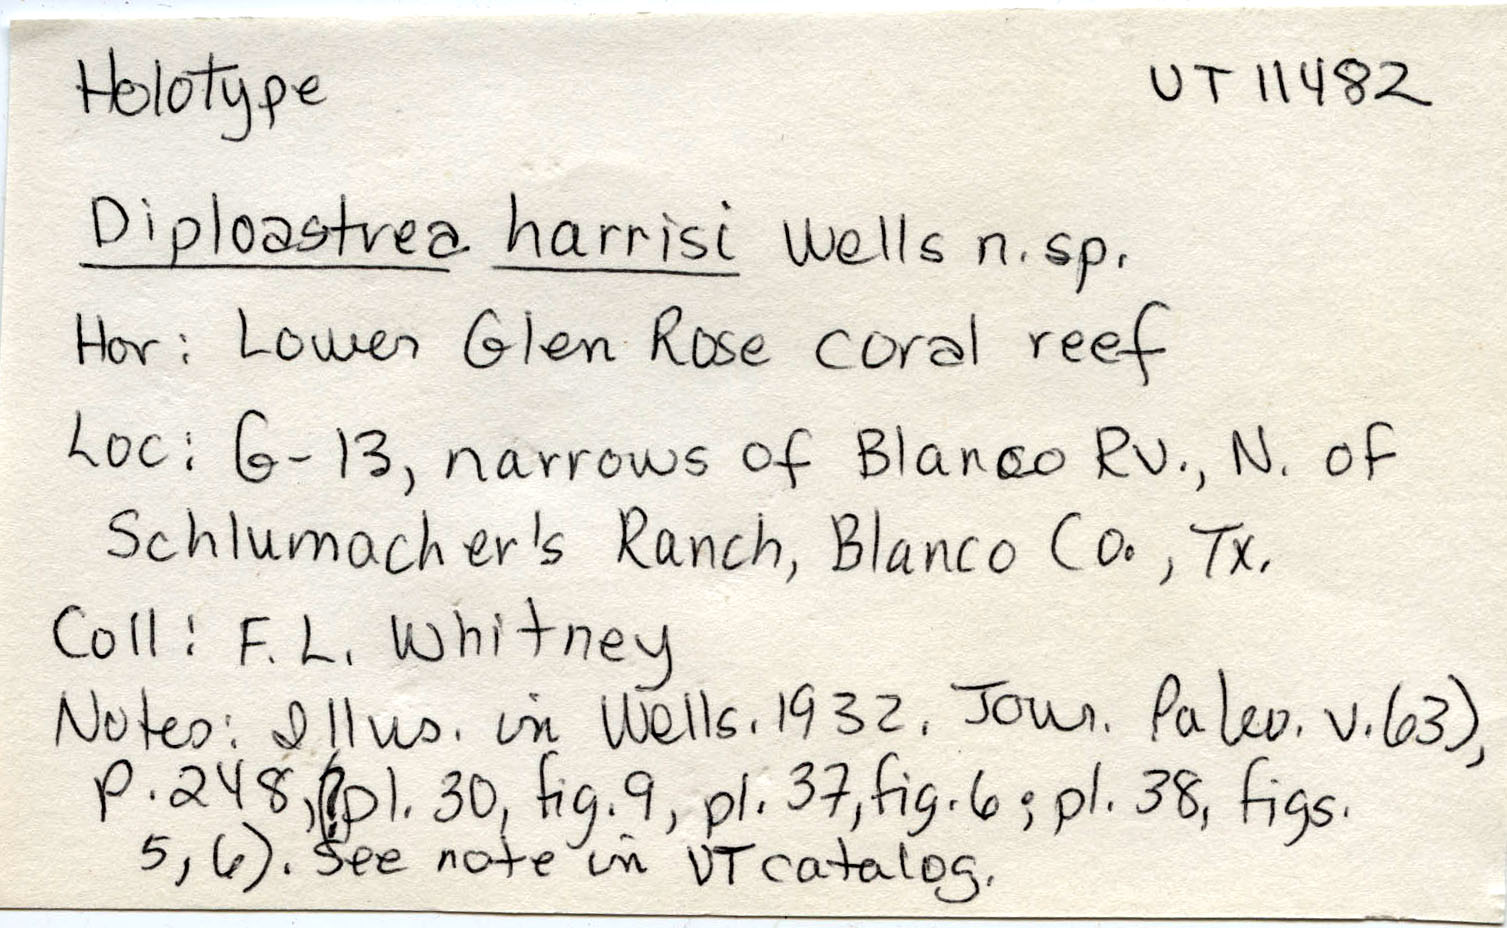 Holotype UT 11482
Diploastrea harrisi Wells n. sp.
Hor: Lower Glen Rose coral reef
Loc: G-13, narrows of Blanco Rv., N. of
Schlumacher's Ranch, Blanco Co., Tx.
Coll: F. L. Whitney
Notes: Illus. in Wells. 1932. Jour. Paleo. v. 6(3),
p. 248, (pl. 30, fig. 9, pl. 37, fig. 6; pl. 38, figs.
5, 6). See note in UT catalog.